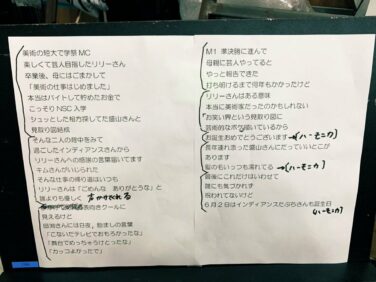 美術の短大で学祭MC
楽しくて芸人目指したリリーさん
卒業後、母にはごまかして
「美術の仕事はじめました」
本当はバイトして貯めたお金で
こっそりNSC入学
シュッとした相方探してた盛山さんと
見取り図結成
そんな二人の背中をみて
過ごしたインディアンスさんから
リリーさんへの感謝の言葉届いてます
キムさんがいじられた
そんな仕事の帰り道はいつも
リリーさんは「ごめんな ありがとうな」と
誰よりも優しく 声かけてくれる
表向きクールに
見えるけど
田渕さんには日夜、励ましの言葉
「こないだテレビでおもろかったな」
「舞台でめっちゃうけとったな」
「カッコよかったで」
M1 準決勝に進んで
母親に芸人やってると
やっと報告できた
打ち明けるまで何年もかかったけど
リリーさんはある意味
本当に美術家だったのかもしれない
お笑い界という見取り図に
芸術的なボケ描いているから
お誕生おめでとうございます (ハーモニカ)
長年連れ添った盛山さんにだっていいとこが
あります
髪の毛いっつも濡れてる → (ハーモニカ)
最後にこれだけはいわせて
誰にも気づかれず
祝われてないけど
6月2日はインディアンスたぶちさんも誕生日
(ハーモニカ)